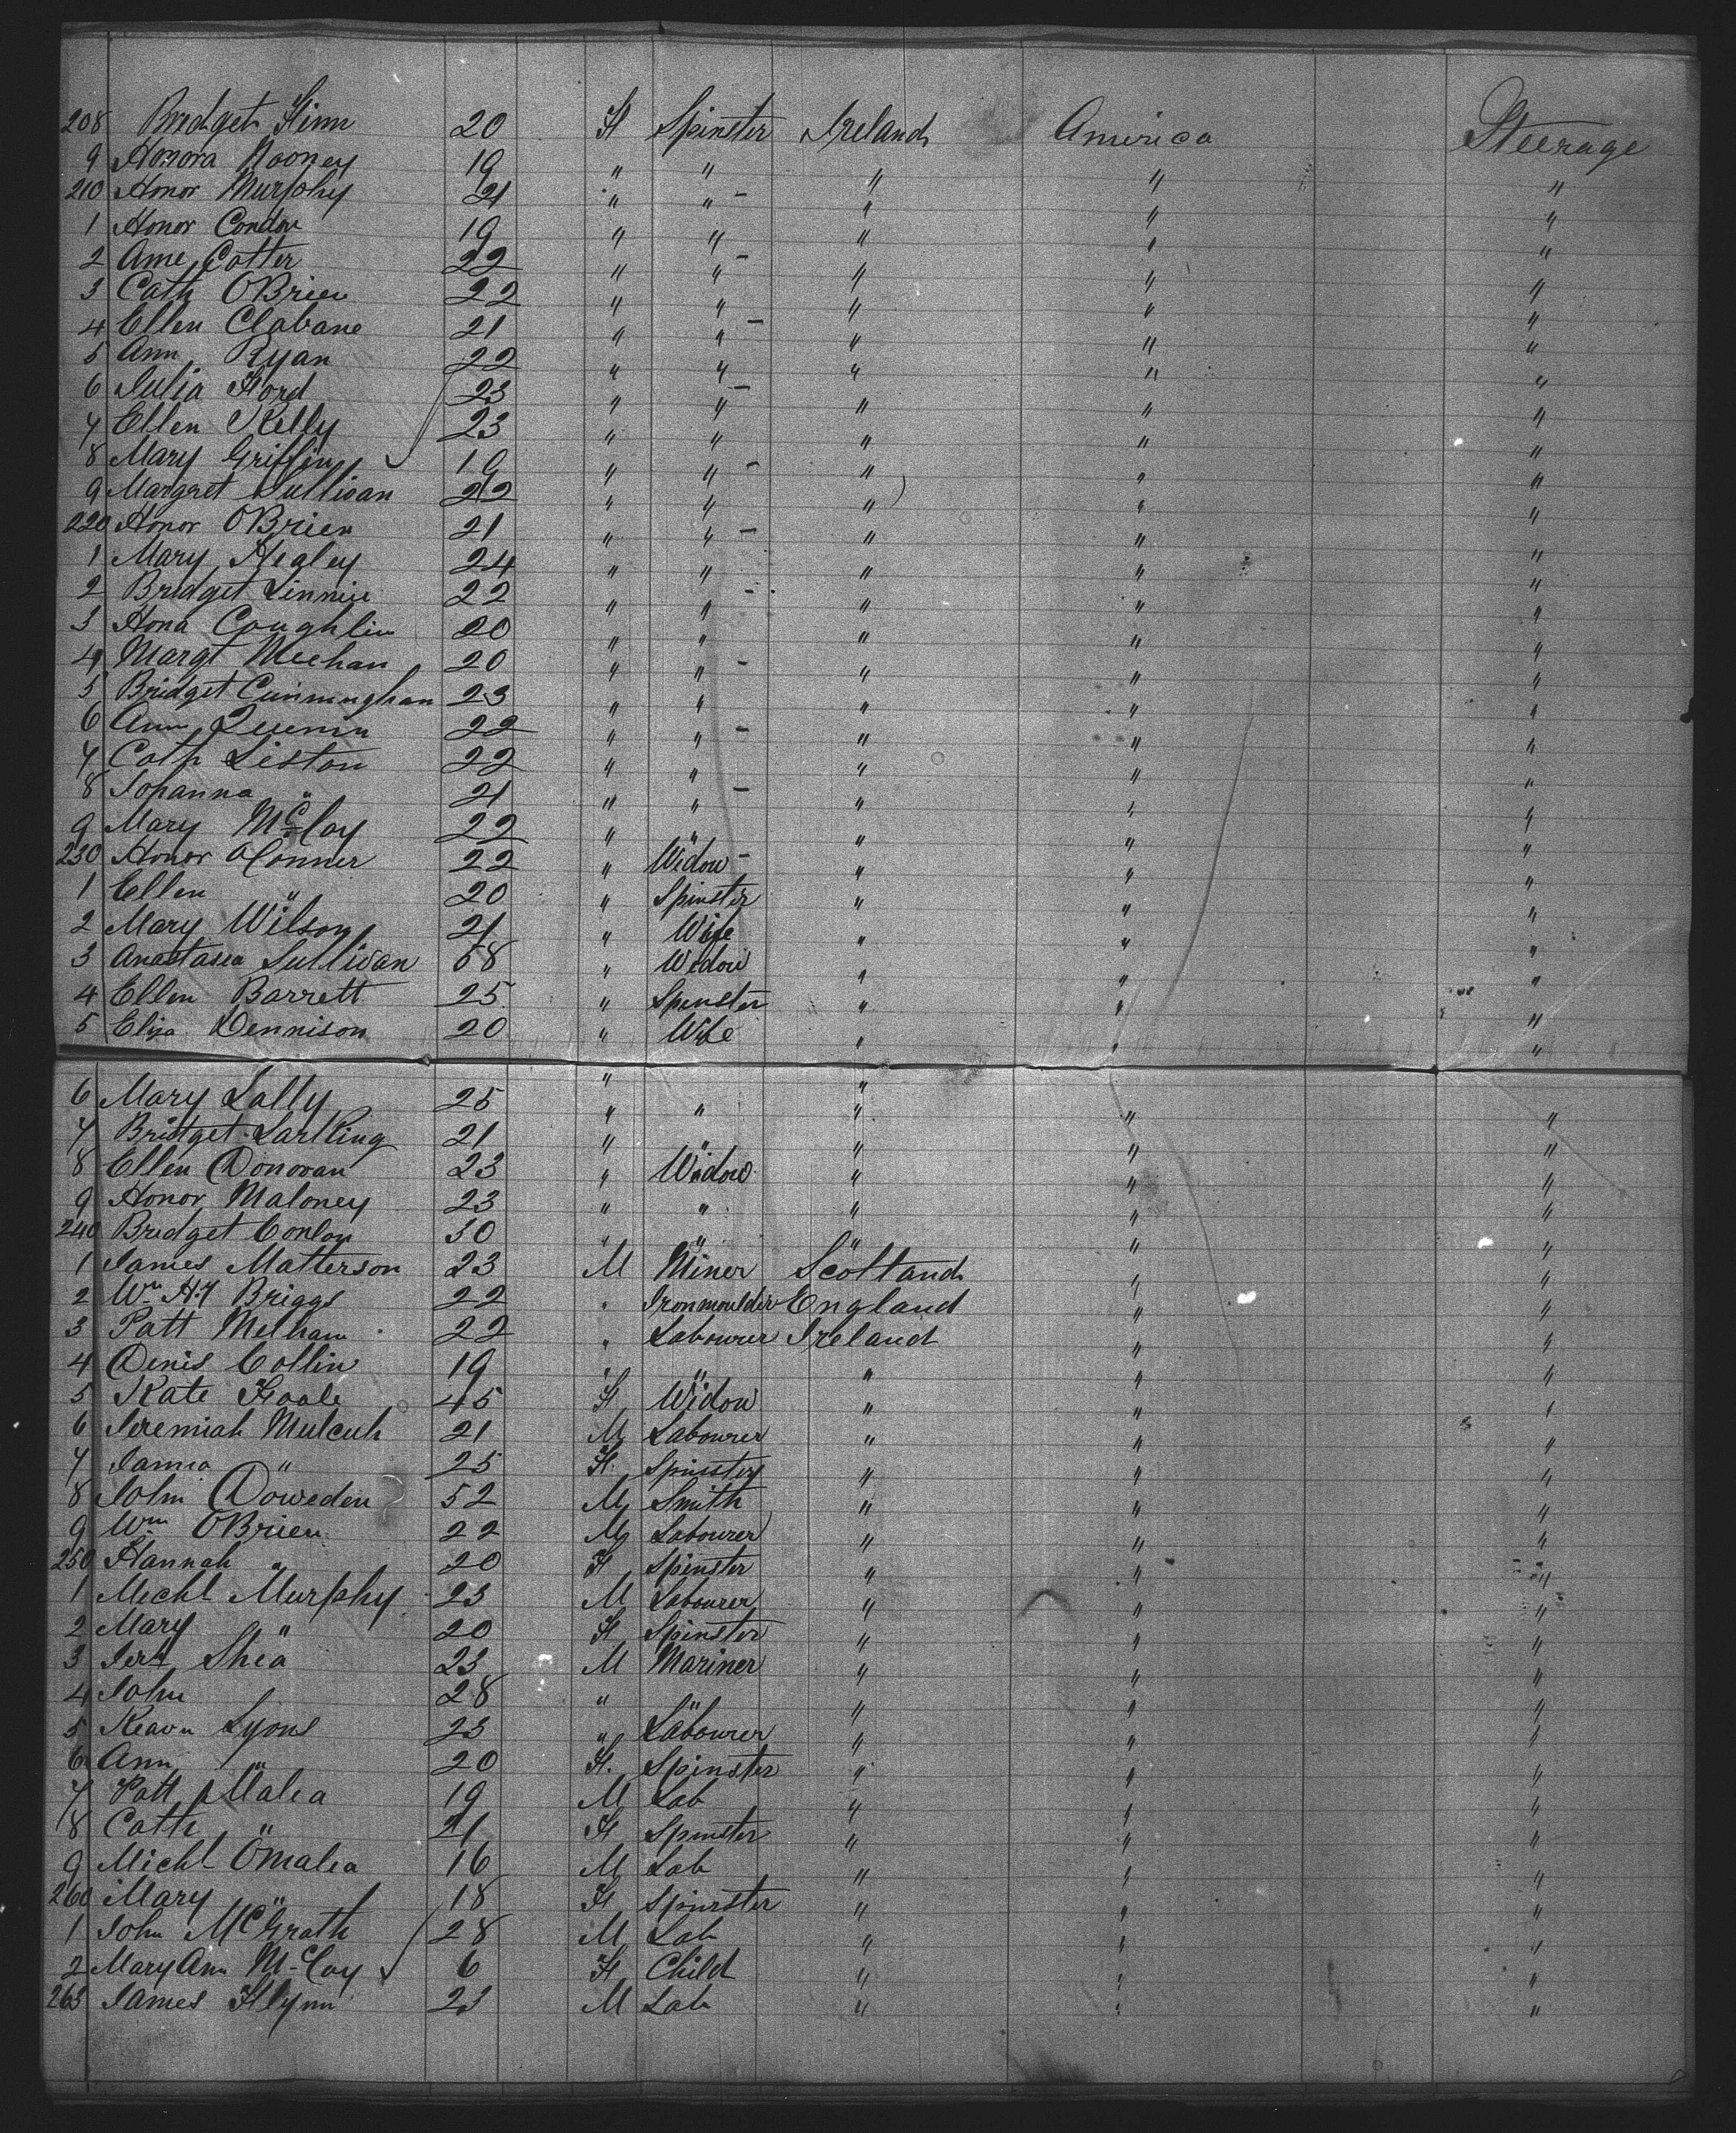 208 Bridget Finn 20 F Spinster Ireland America Steerage
9 Honora Rooney 19 " " " " "
210 Honor Murphy 21 " " " " "
1 Honor Condon 19 " " " " "
2 Ame Cotter 22 " " " " "
3 Cath OBrien 22 " " " " "
4 Ellen Clabane 21 " " " " "
5 Ann Ryan 22 " " " " "
6 Julia Ford 23 " " " " "
7 Ellen Kelly 23 " " " " "
8 Mary Griffin 19 " " " " "
9 Margret Sullivan 22 " " " " "
220 Honor OBrien 21 " " " " "
1 Mary Healey 24 " " " " "
2 Bridget 22 " " " " "
3 Hona Coughlin 20 " " " " "
4 Margt Meehan 20 " " " " "
5 Bridget Cunningham 23 " " " " "
6 Ann 22 " " " " "
7 Cath Liston 22 " " " " "
8 Johanna " 21 " " " " "
9 Mary McCoy 22 " " " " "
230 Honor OConner 22 " Widow " " "
1 Ellen " 20 " Spinster " " "
2 Mary Wilson 21 " Wife " " "
3 Anastasia Sullivan 58 " Widow " " "
4 Ellen Barrett 25 " Spinster " " "
5 Eliza Dennison 20 " Wife " " "
6 Mary Lally 25 " " " " "
7 Bridget Larlking 21 " " " " "
8 Ellen Donovan 23 " Widow " " "
9 Honor Maloney 23 " " " " "
240 Bridget Conlon 30 " " " " "
1 James Matterson 23 M Miner Scotland " "
2 Wm Hy Briggs 22 " Ironmoulder England " "
3 Patt Melham 22 " Labourer Ireland " "
4 Denis Collin 19 " " " " "
5 Kate Foale 45 F Widow " " "
6 Jeremiah 21 M Labourer " " "
7 " 25 F Spinster " " "
8 John Doweden 52 M Smith " " "
9 Wm OBrien 22 M Labourer " " "
250 Hannah " 20 F Spinster " " "
1 Michl Murphy 23 M Labourer " " "
2 Mary " 20 F Spinster " " "
3 Jerh Shea 23 M Mariner " " "
4 John " 28 " " " " "
5 Lyons 23 " Labourer " " "
6 Ann " 20 F. Spinster " " "
7 Patt Malea 19 M Lab " " "
8 Cath " 21 F Spinster " " "
9 Michl OMalea 16 M Lab " " "
260 Mary " 18 F Spinster " " "
1 John McGrath 28 M Lab " " "
2 Mary Ann McCoy 6 F Child " " "
263 James Flynn 23 M Lab " " "